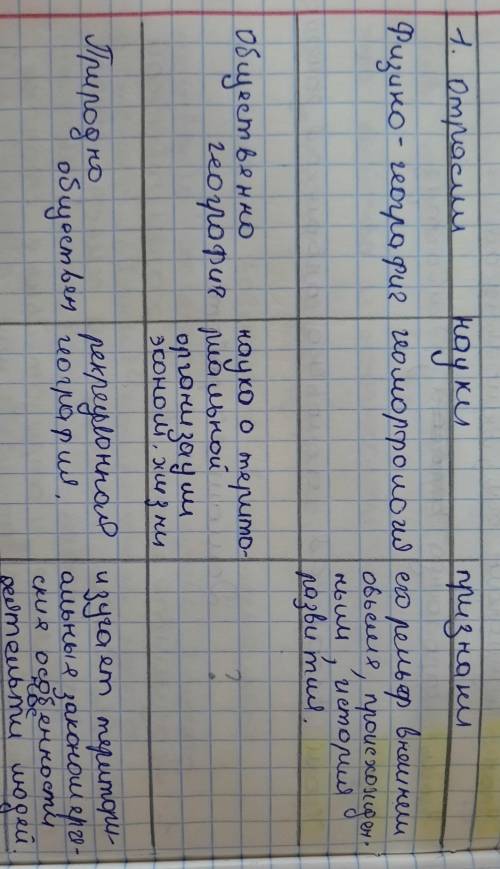 1. Отрасли науки признаки
Физико-географич геоморфология его рельеф внешнем
объеме, происхожден.
ным, история
развития.
Общественно
география
наука о терито-
риальной
организации
эконом. жизни
?
Природно
обществен
рекреационная
география.
изучает територи-
альные закономерге-
ския особенности
деятельти людей.